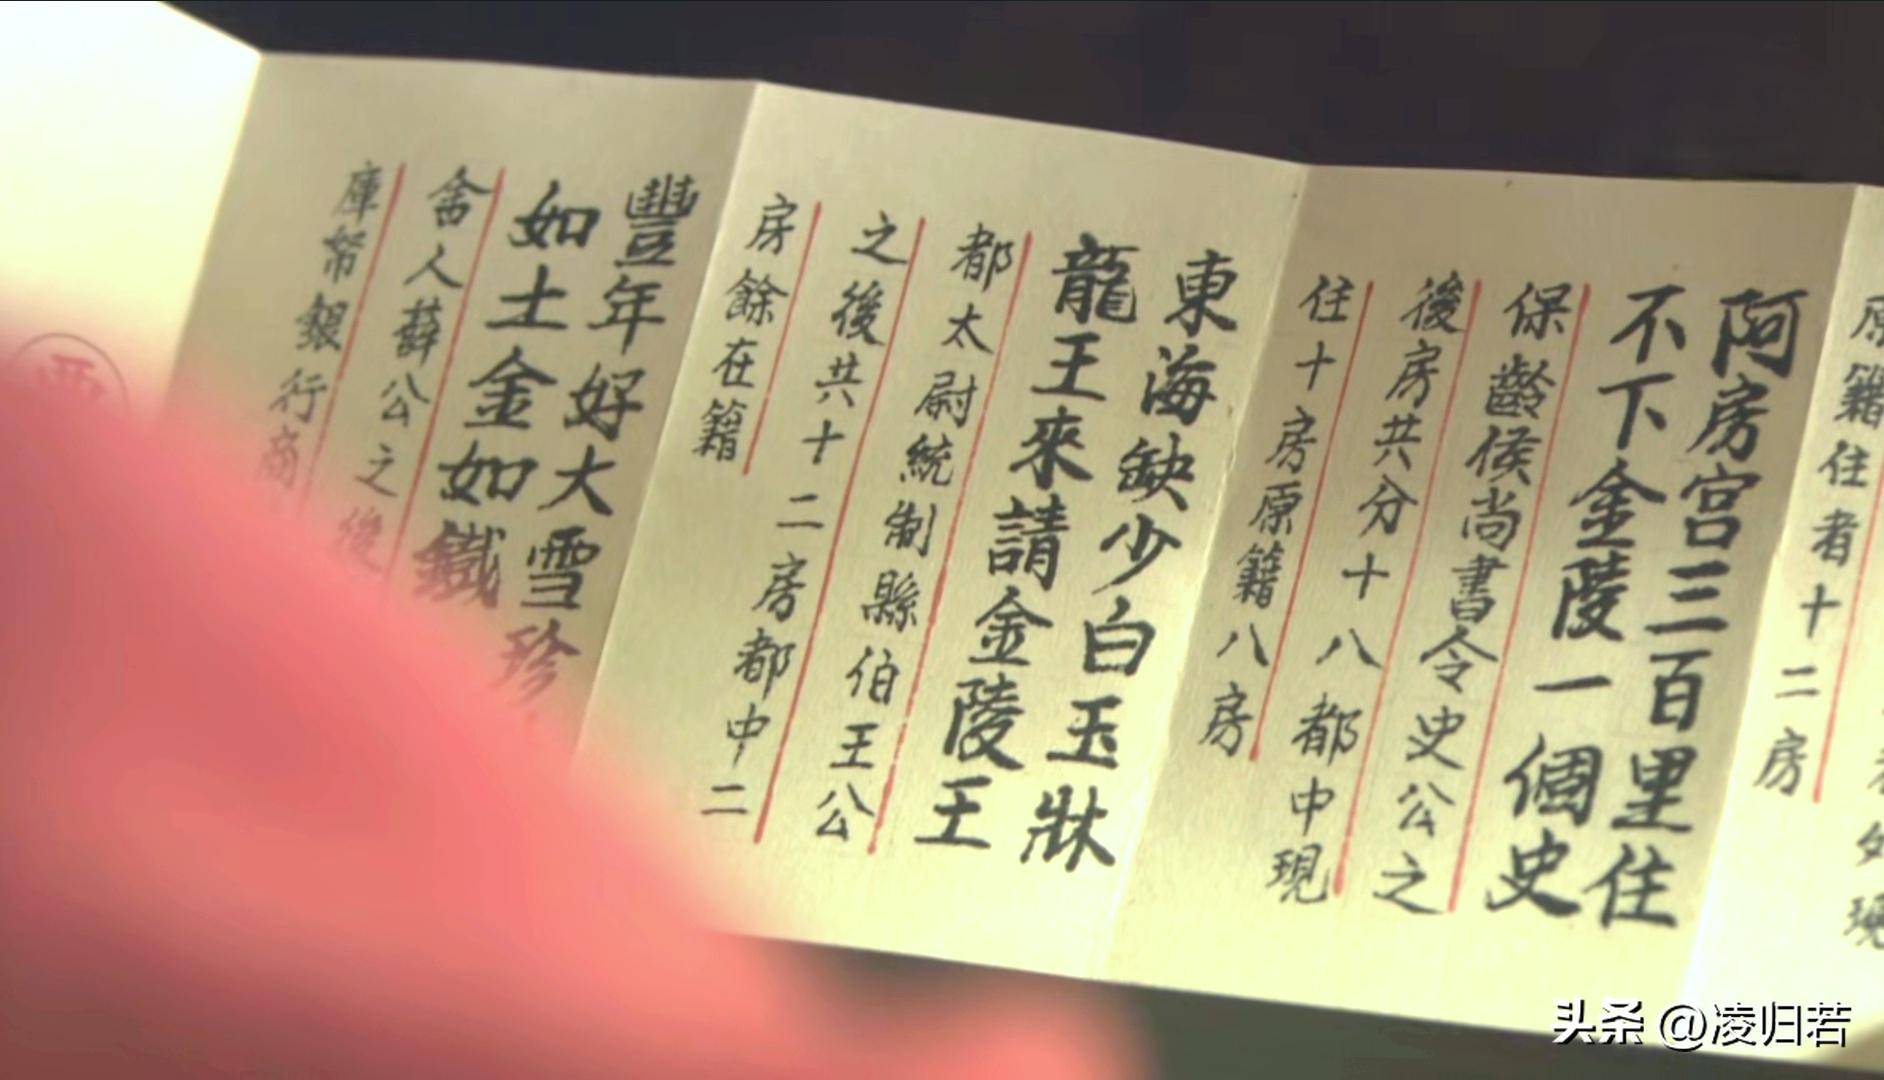 現
原籍住者十二房
阿房宮三百里住
不下金陵一個史
保齡侯尚書令史公之
後房共分十八都中現
住十房原籍八房
東海缺少白玉牀
龍王來請金陵王
都太尉統制縣伯王公
之後共十二房都中二
房餘在籍
豐年好大雪珍
如土金如鐵
舍人薛公之後
庫帑銀行商
头条 @凌归若